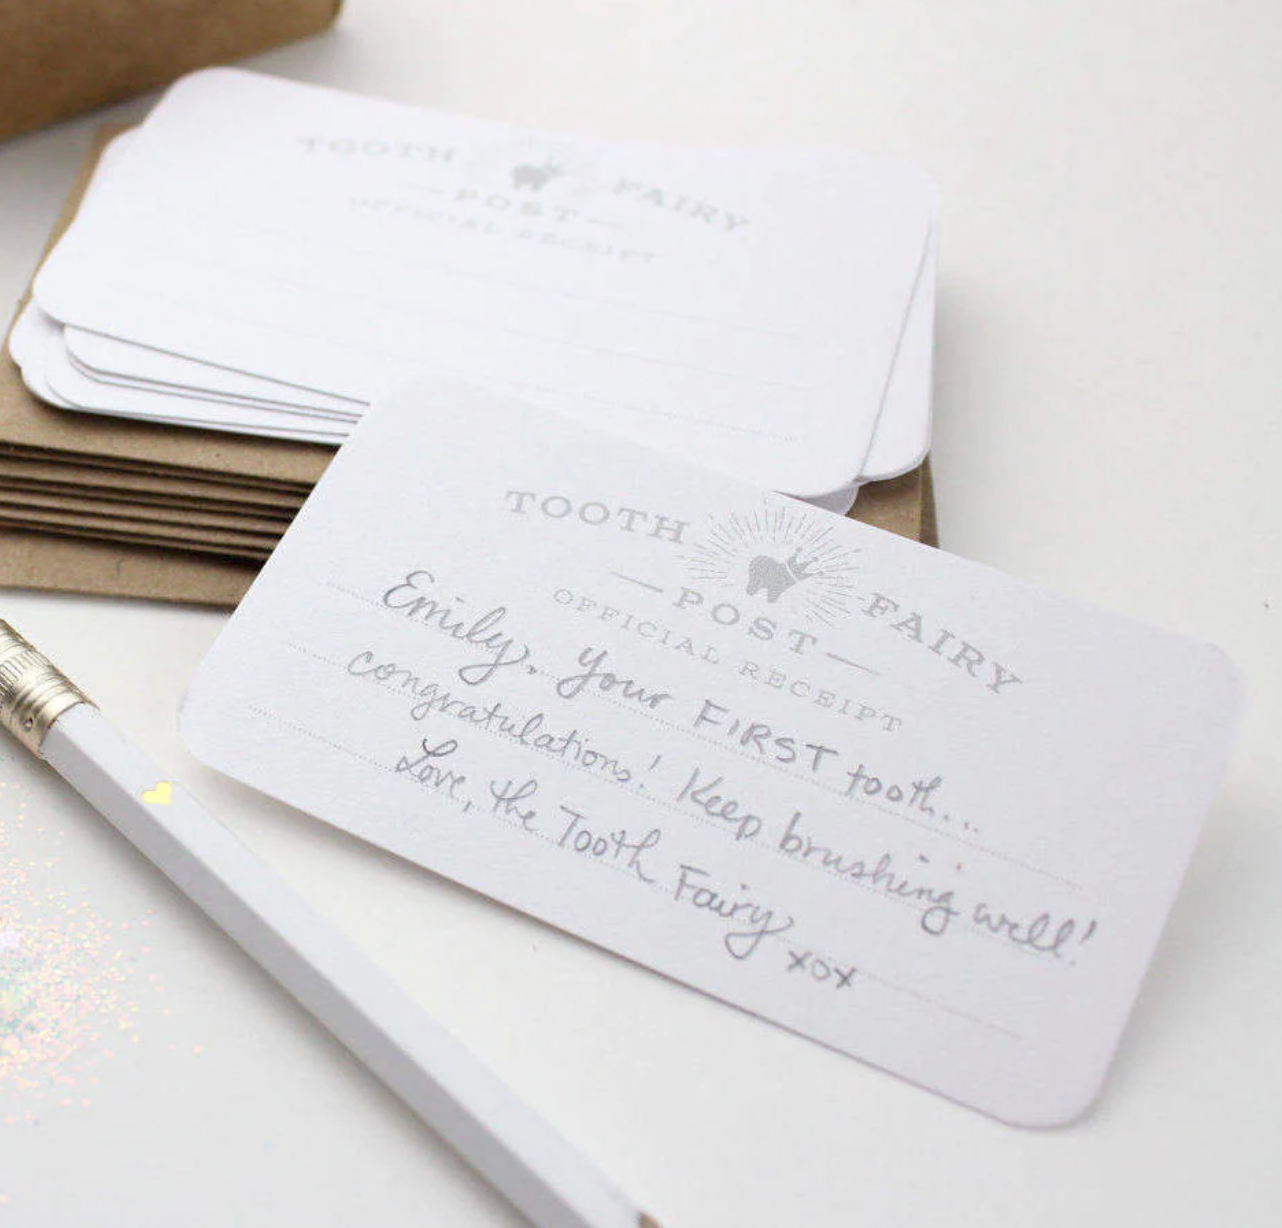 TOOTH FAIRY
—POST—
OFFICIAL RECEIPT
TOOTH FAIRY
—POST—
OFFICIAL RECEIPT
Emily, Your FIRST tooth...
congratulations! Keep brushing well!
Love, the Tooth Fairy
xox